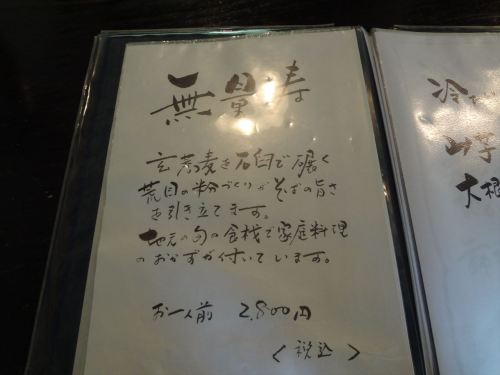 無量寿
玄蕎麦を石臼で碾く
荒目の粉づくりがそばの旨さ
を引き立てます。
地元の旬の食材で家庭料理
のおかずが付いています。
お一人前 2,800円
<税込>
冷
大根